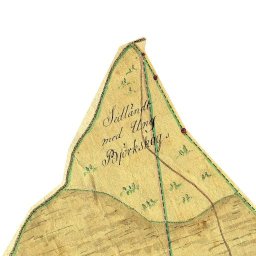 Sidländt
med Ung
Björkskog